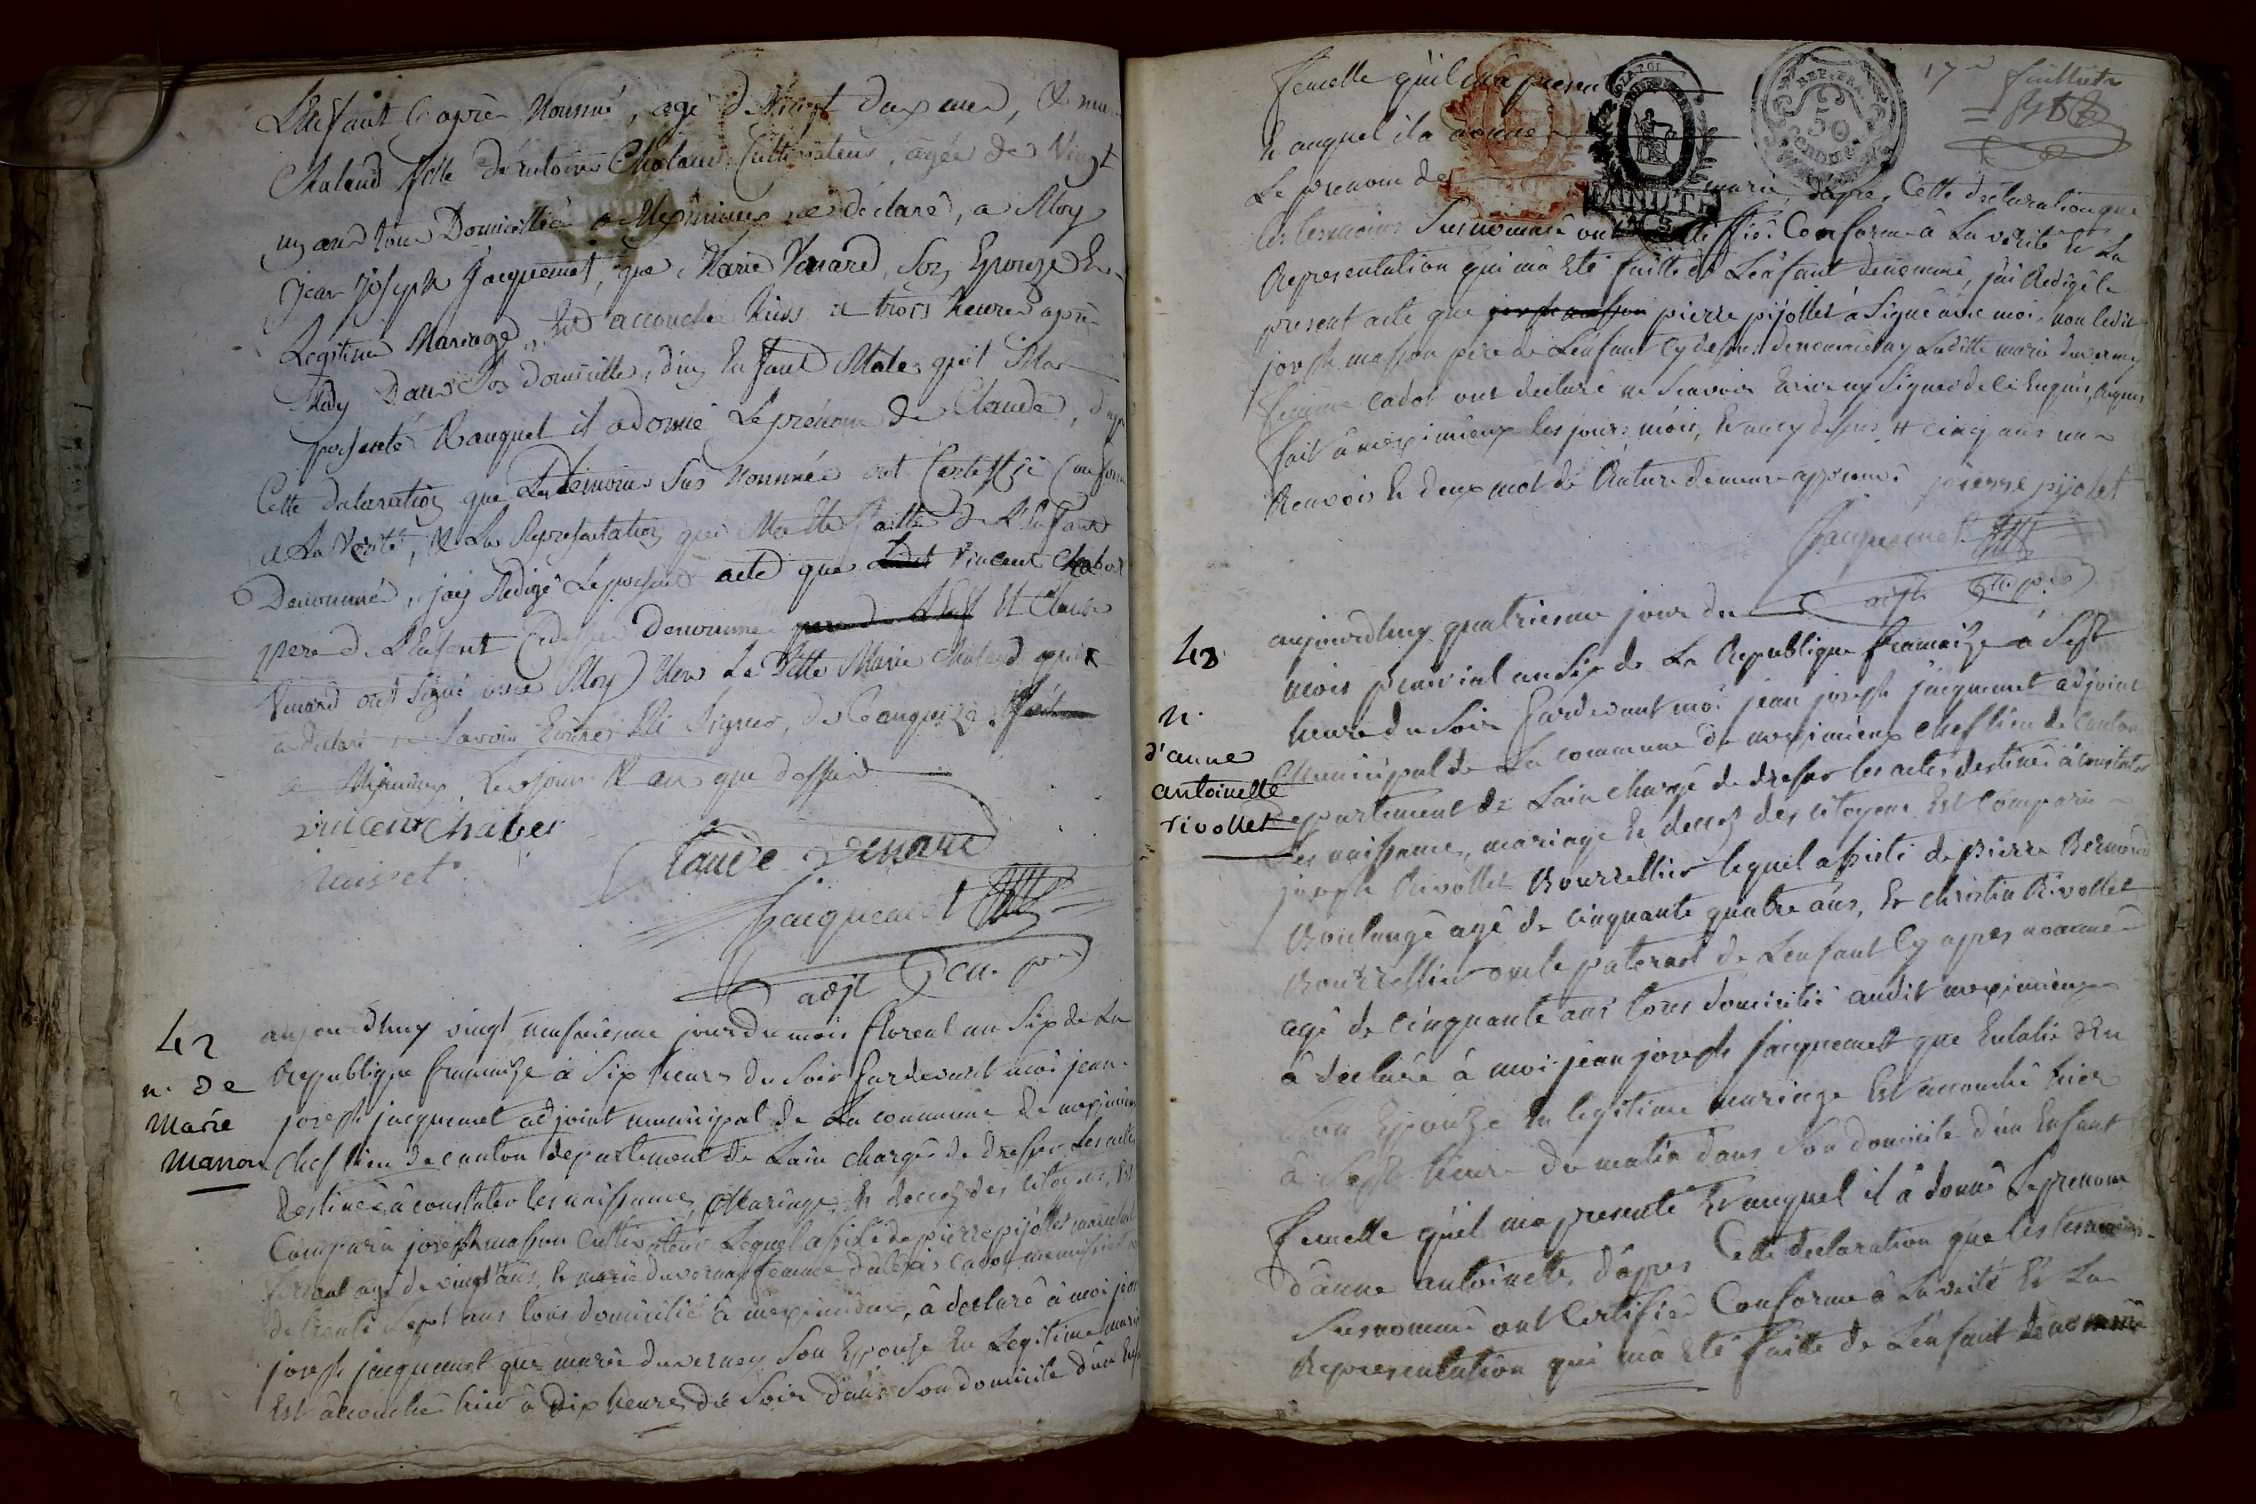 L'Enfant Ci après Nommé, agé de Vingt deux ans, & marie
Chaland fille Cultivateur, agée de Vingt
un ans tous Domiciliés a Meximieux a déclaré, a Moy
Jean Joseph Jacquemet, que Marie Venard, Son Epouze En
Legitime Mariage, Est accouchée hier a trois heures après
Midy Dans Son domicille, d'un Enfant Male qu'il Ma
présenté & auquel il a donné Le prénom de Claude, d'apr
Cette déclaration que Les témoins Sus Nommés ont Certiffié Conforme
a La Vérité, & La Représentation qui Ma Eté faitte de L'Enfant
Denommé, j'ais Rédigé Le présent acte que Vincent Chabert
pere de L'Enfant Cidessus Denommé Et Claude
Venard ont signé avec Moy Non La ditte Marie Chaland qui
a déclaré ne Savoir Ecrire Ni Signer, de Ce enquize. fait
a Meximieux, Les jour & an que dessus
vincent chaber
Claude venard
Jacquemet
adjt
42
n. de
Marie
Masson
aujourdhuy vingt neufviesme jour du mois floreal an Six de La
Republique française à Six heures du Soir pardevant moi jean
joseph jacquemet adjoint municipal de La commune de meximieux
chef lieu de canton departement de Lain chargé de dresser Les actes
destinés à constater les naissances, Mariage & decez des citoyens, Est
Comparu joseph masson Cultivateur Lequel assisté de pierre pijollet marechal
ferrant agé de vingt ans, & marie duvernay femme cadot menuisier
de trente Sept ans tous domicilié à meximieux, à declaré à moi jean
joseph jacquemet que marie duvernay Son Epouse En Legitime mariage
Est accouchée hier à dix heures du Soir dans Son domicile d'un Enfant
femelle qu'il m'a presenté
& auquel il a donné
Le prenom de marie, d'apres Cette declaration que
les temoins Susnommé ont certiffié Conforme à La vérité & La
Representation qui m'a Eté faitte de L'enfant denommé, j'ai Redigé le
present acte que pierre pijollet à Signé avec moi non ledit
joseph masson père de L'enfant Cy dessus denommé ny Laditte marie duvernay
femme cadot ont declaré ne Scavoir Ecrire ny Signer de ce Enquis, Requis
fait à meximieux les jours, mois, & an cy dessus
Renvois & deux mot de Rature demeure approuvé pierre pijolet
Jacquemet
adjt
REP. FRA.
50
17e feuillet
43
n.
d'anne
antoinette
rivollet
aujourdhuy quatriesme jour du
mois prairial an Six de La Republique française à Sept
heure du Soir pardevant moi jean joseph jacquemet adjoint
Municipal de La commune de meximieux chef lieu de Canton
departement de Lain chargé de dresser les actes destinés à constater
Les naissance, mariage & decez des citoyens Est Comparu
joseph Rivollet Bourrellier lequel assisté de pierre Bernard
Boulangé agé de Cinquante quatre ans, & christin Rivollet
Bourrellier oncle paternel de L'enfant Cy apres nommé
agé de Cinquante ans tous domicilié audit meximieux
à declaré à moi jean joseph jacquemet que Eulalie
Son Epouze En legitime mariage Est accouchée hier
à Sept heure du matin dans Son domicile d'un Enfant
femelle qu'il m'a presenté & auquel il à donné Le prenom
d'anne antoinette, d'apres Cette declaration que les temoins
Susnommé ont Certiffié Conforme à La verité & La
Representation qui m'a Eté faitte de L'enfant denommé